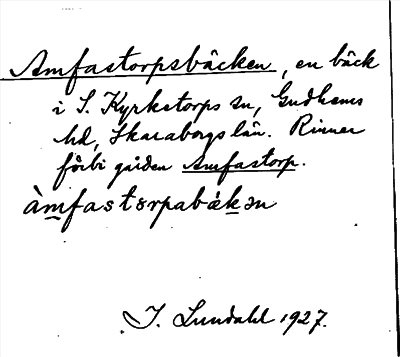 Amfastorpsbäcken, en bäck
i S. Kyrketorps sn, Gudhems
hd, Skaraborgs län. Rinner
förbi gården Amfastorp.
àmfastɔrpabǽkən
I. Lundahl 1927.